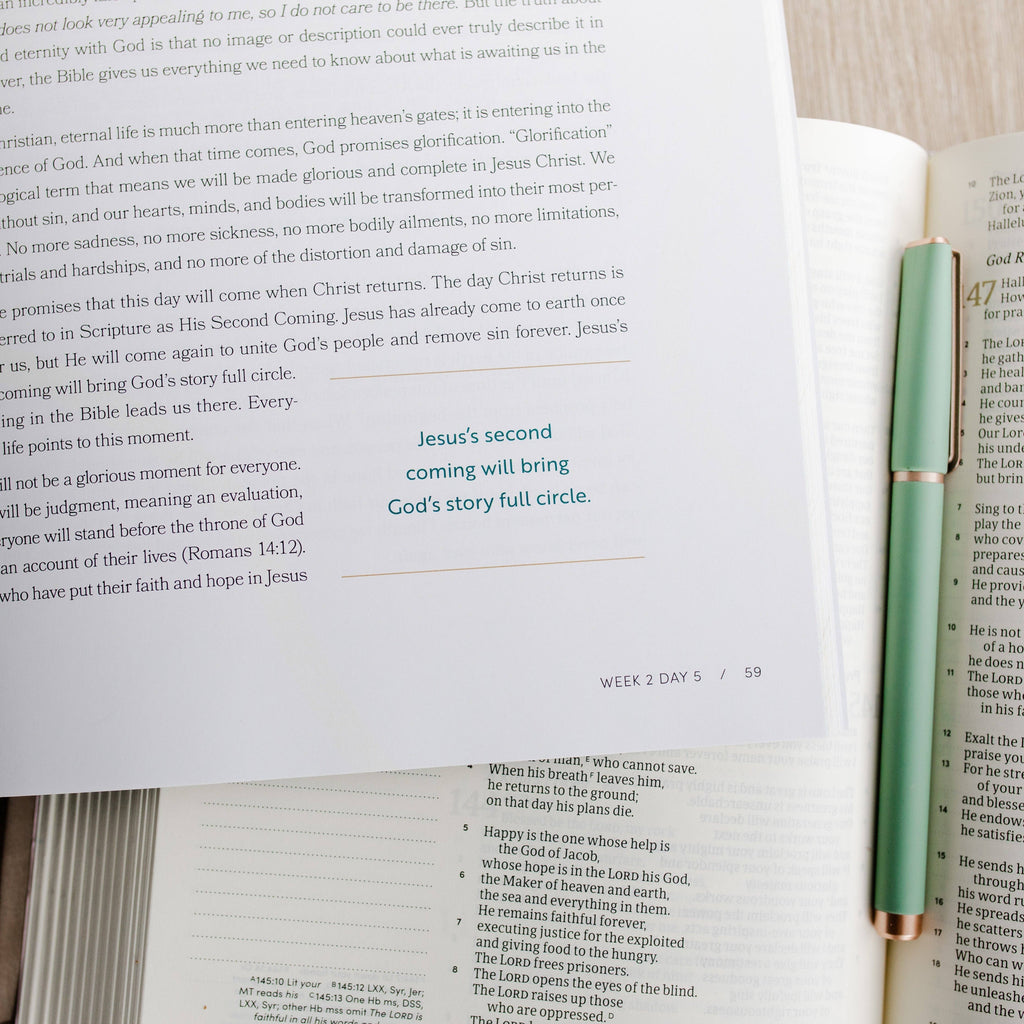 does not look very appealing to me, so I do not care to be there. But the truth about
d eternity with God is that no image or description could ever truly describe it in
ver, the Bible gives us everything we need to know about what is awaiting us in the
e.
hristian, eternal life is much more than entering heaven's gates; it is entering into the
ence of God. And when that time comes, God promises glorification. “Glorification”
ogical term that means we will be made glorious and complete in Jesus Christ. We
thout sin, and our hearts, minds, and bodies will be transformed into their most per-
. No more sadness, no more sickness, no more bodily ailments, no more limitations,
trials and hardships, and no more of the distortion and damage of sin.
e promises that this day will come when Christ returns. The day Christ returns is
erred to in Scripture as His Second Coming. Jesus has already come to earth once
r us, but He will come again to unite God's people and remove sin forever. Jesus's
coming will bring God's story full circle.
ing in the Bible leads us there. Every-
life points to this moment.
ill not be a glorious moment for everyone.
will be judgment, meaning an evaluation,
ryone will stand before the throne of God
an account of their lives (Romans 14:12).
who have put their faith and hope in Jesus
Jesus's second
coming will bring
God's story full circle.
WEEK 2 DAY 5 / 59
man,E who cannot save.
4 When his breathF leaves him,
he returns to the ground;
on that day his plans die.
5 Happy is the one whose help is
the God of Jacob,
whose hope is in the LORD his God,
6 the Maker of heaven and earth,
the sea and everything in them.
He remains faithful forever,
7 executing justice for the exploited
and giving food to the hungry.
The LORD frees prisoners.
8 The LORD opens the eyes of the blind.
The LORD raises up those
who are oppressed.D
The LORD
A145:10 Lit your B145:12 LXX, Syr, Jer;
MT reads his C145:13 One Hb ms, DSS,
LXX, Syr; other Hb mss omit The LORD is
faithful in all his words
10 The Lo
Zion, y
for
Hallel
God R
147 Hall
How
for pra
2 The LO
he gath
3 He heal
and ban
4 He coun
he gives
5 Our Lor
his unde
6 The LOR
but brin
7 Sing to t
play the
8 who cov
prepares
and caus
9 He provi
and the y
10 He is not
of a ho
he does n
11 The LORD
those who
in his fa
12 Exalt the
praise you
13 For he stre
of your
and blesse
14 He endows
he satisfie
15 He sends h
through
his word ru
16 He spreads
he scatters
17 he throws h
Who can w
18 He sends hi
he unleashe
and the w